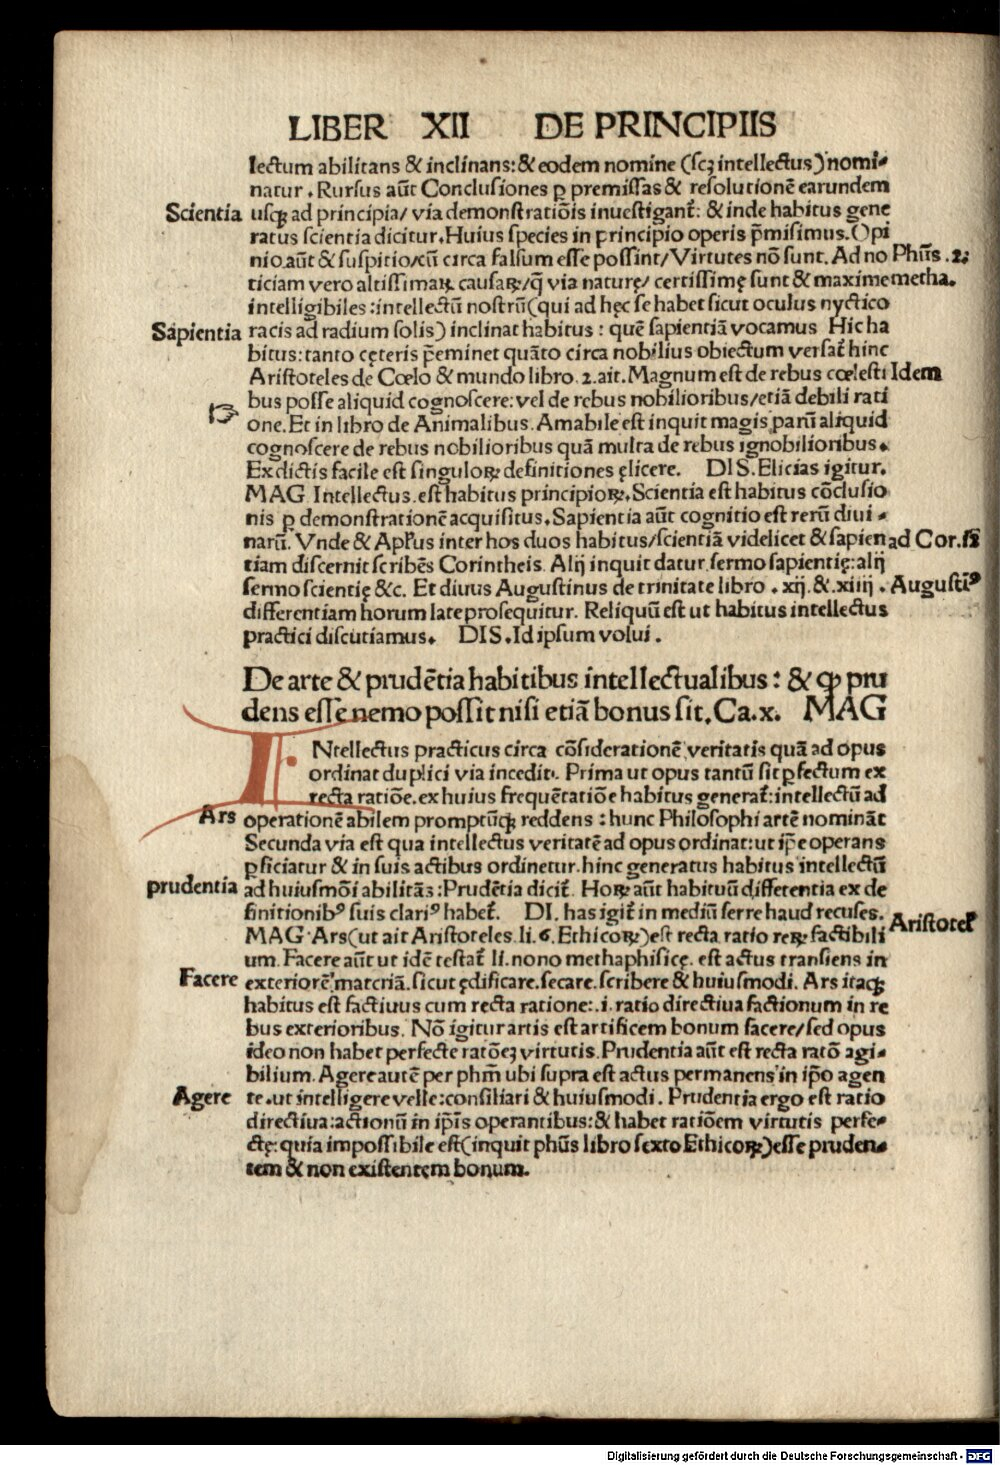 LIBER XII DE PRINCIPIIS
lectum abilitans & inclinans: & eodem nomine (scꝫ intellectus) nomi-
natur. Rursus aūt Conclusiones ꝑ premissas & resolutionē earundem
Scientia
usqꝫ ad principia/ via demonstratiōis inuestigant᷑: & inde habitus gene
ratus scientia dicitur. Huius species in principio operis p̄misimus. Opi
nio aūt & suspitio/cū circa falsum esse possint/ Virtutes nō sunt. Ad no
Phūs .2.
ticiam vero altissimaꝝ causaꝝ/q̄ via naturę/ certissimę sunt & maxime
metha.
intelligibiles: intellectū nostrū (qui ad hęc se habet sicut oculus nyctico
Sapientia
racis ad radium solis) inclinat habitus: quē sapientiā vocamus Hic ha
bitus: tanto cęteris p̄eminet quāto circa nobilius obiectum versat᷑ hinc
Aristoteles de Cœlo & mundo libro .2. ait. Magnum est de rebus cœlesti
Idem
bus posse aliquid cognoscere: vel de rebus nobilioribus/etiā debili rati
one. Et in libro de Animalibus. Amabile est inquit magis parū aliquid
cognoscere de rebus nobilioribus quā multa de rebus ignobilioribus.
Ex dictis facile est singuloꝝ definitiones ęlicere. DIS. Elicias igitur.
MAG Intellectus. est habitus principioꝝ. Scientia est habitus cōclusio
nis ꝑ demonstrationē acquisitus. Sapientia aūt cognitio est rerū diui-
narū. Vnde & Apl'us inter hos duos habitus/scientiā videlicet & sapien
ad Cor.
tiam discernit scribēs Corintheis. Alij inquit datur sermo sapientię: alij
sermo scientię &c. Et diuus Augustinus de trinitate libro . xij. & .xiiij .
Augustiꝰ
differentiam horum late prosequitur. Reliquū est ut habitus intellectus
practici discutiamus. DIS. Id ipsum volui.
De arte & prudētia habitibus intellectualibus: & ꝙ pru
dens esse nemo possit nisi etiā bonus sit. Ca.x. MAG
INtellectus practicus circa cōsiderationē veritatis quā ad opus
ordinat duplici via incedit. Prima ut opus tantū sit ꝑfectum ex
recta ratiōe. ex huius frequētatiōe habitus generat᷑: intellectū ad
Ars
operationē abilem promptūqꝫ reddens: hunc Philosophi artē nomināt
Secunda via est qua intellectus veritatē ad opus ordinat: ut ip̄e operans
ꝑficiatur & in suis actibus ordinetur. hinc generatus habitus intellectū
prudentia
ad huiusmōi abilitās: Prudētia dicit᷑ Hoꝝ aūt habituū differentia ex de
finitionibꝰ suis clariꝰ habet᷑. DI. has igit᷑ in mediū ferre haud recuses.
Aristotel᷑
MAG Ars (ut ait Aristoteles li. 6. Ethicoꝝ) est recta ratio reꝝ factibili
um. Facere aūt ut idē testat᷑ li. nono methaphisicę. est actus transiens in
Facere
exteriorē materiā. sicut ędificare. secare. scribere & huiusmodi. Ars itaqꝫ
habitus est factiuus cum recta ratione: .i. ratio directiua factionum in re
bus exterioribus. Nō igitur artis est artificem bonum facere/ sed opus
ideo non habet perfecte ratōeꝫ virtutis. Prudentia aūt est recta ratō agi-
bilium. Agere autē per phm̄ ubi supra est actus permanens in ip̄o agen
Agere
te. ut intelligere velle: consiliari & huiusmodi. Prudentia ergo est ratio
directiua: actionū in ip̄is operantibus: & habet ratiōem virtutis perfe-
ctę: quia impossibile est (inquit phūs libro sexto Ethicoꝝ) esse pruden-
tem & non existentem bonum.
Digitalisierung gefördert durch die Deutsche Forschungsgemeinschaft - DFG